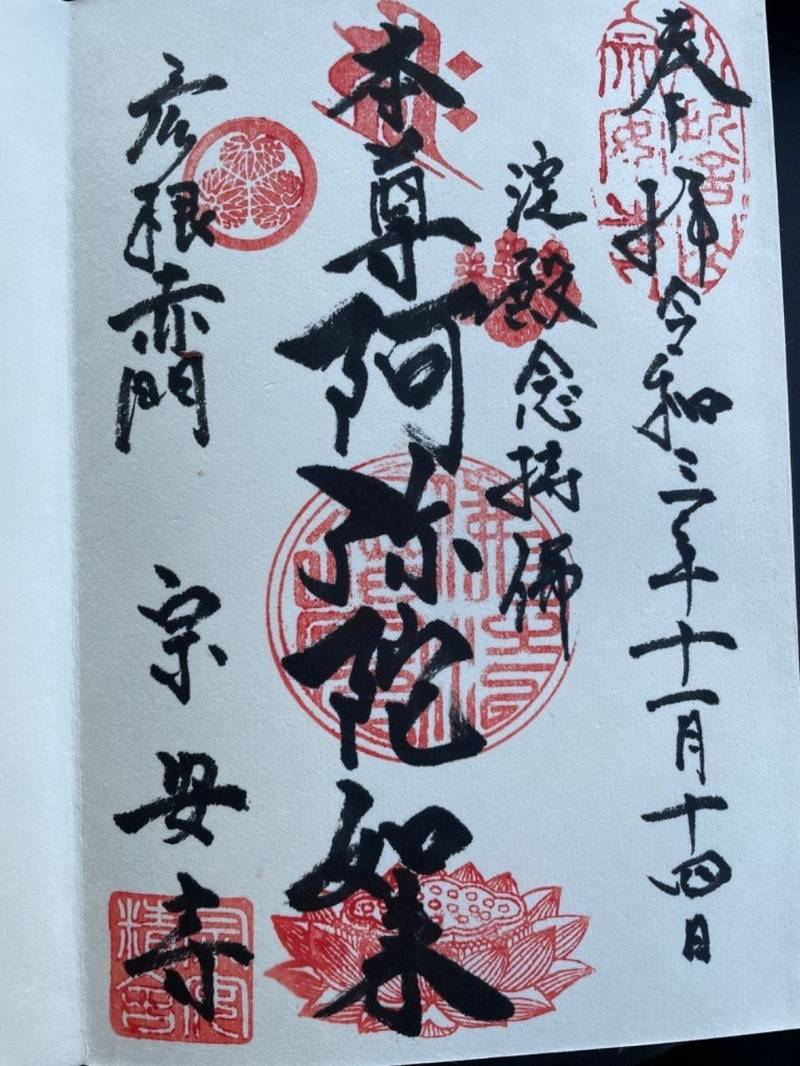 奉拝 令和三年十一月十四日
淀殿念持佛
本尊阿弥陀如来
彦根赤門 宗安寺